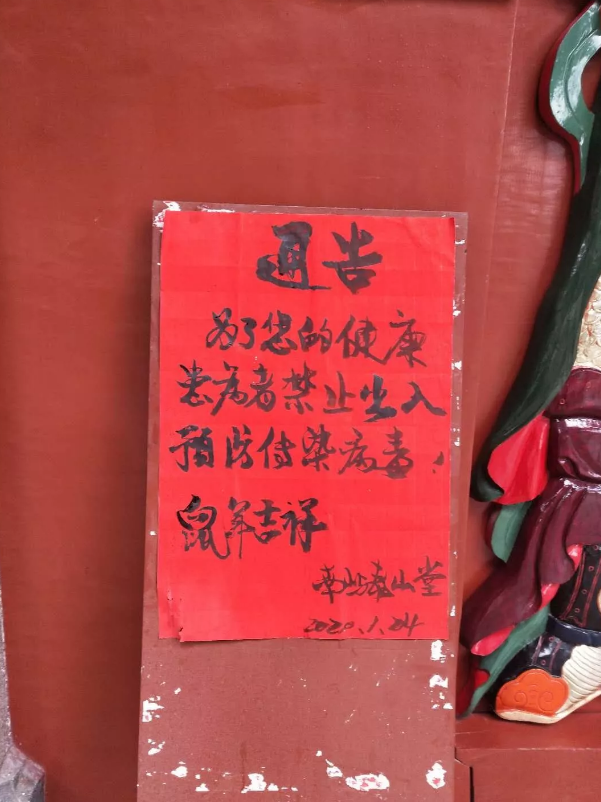 通告
为了您的健康
患病者禁止出入
预防传染病毒！
鼠年吉祥
南屿泰山堂
2020.1.24